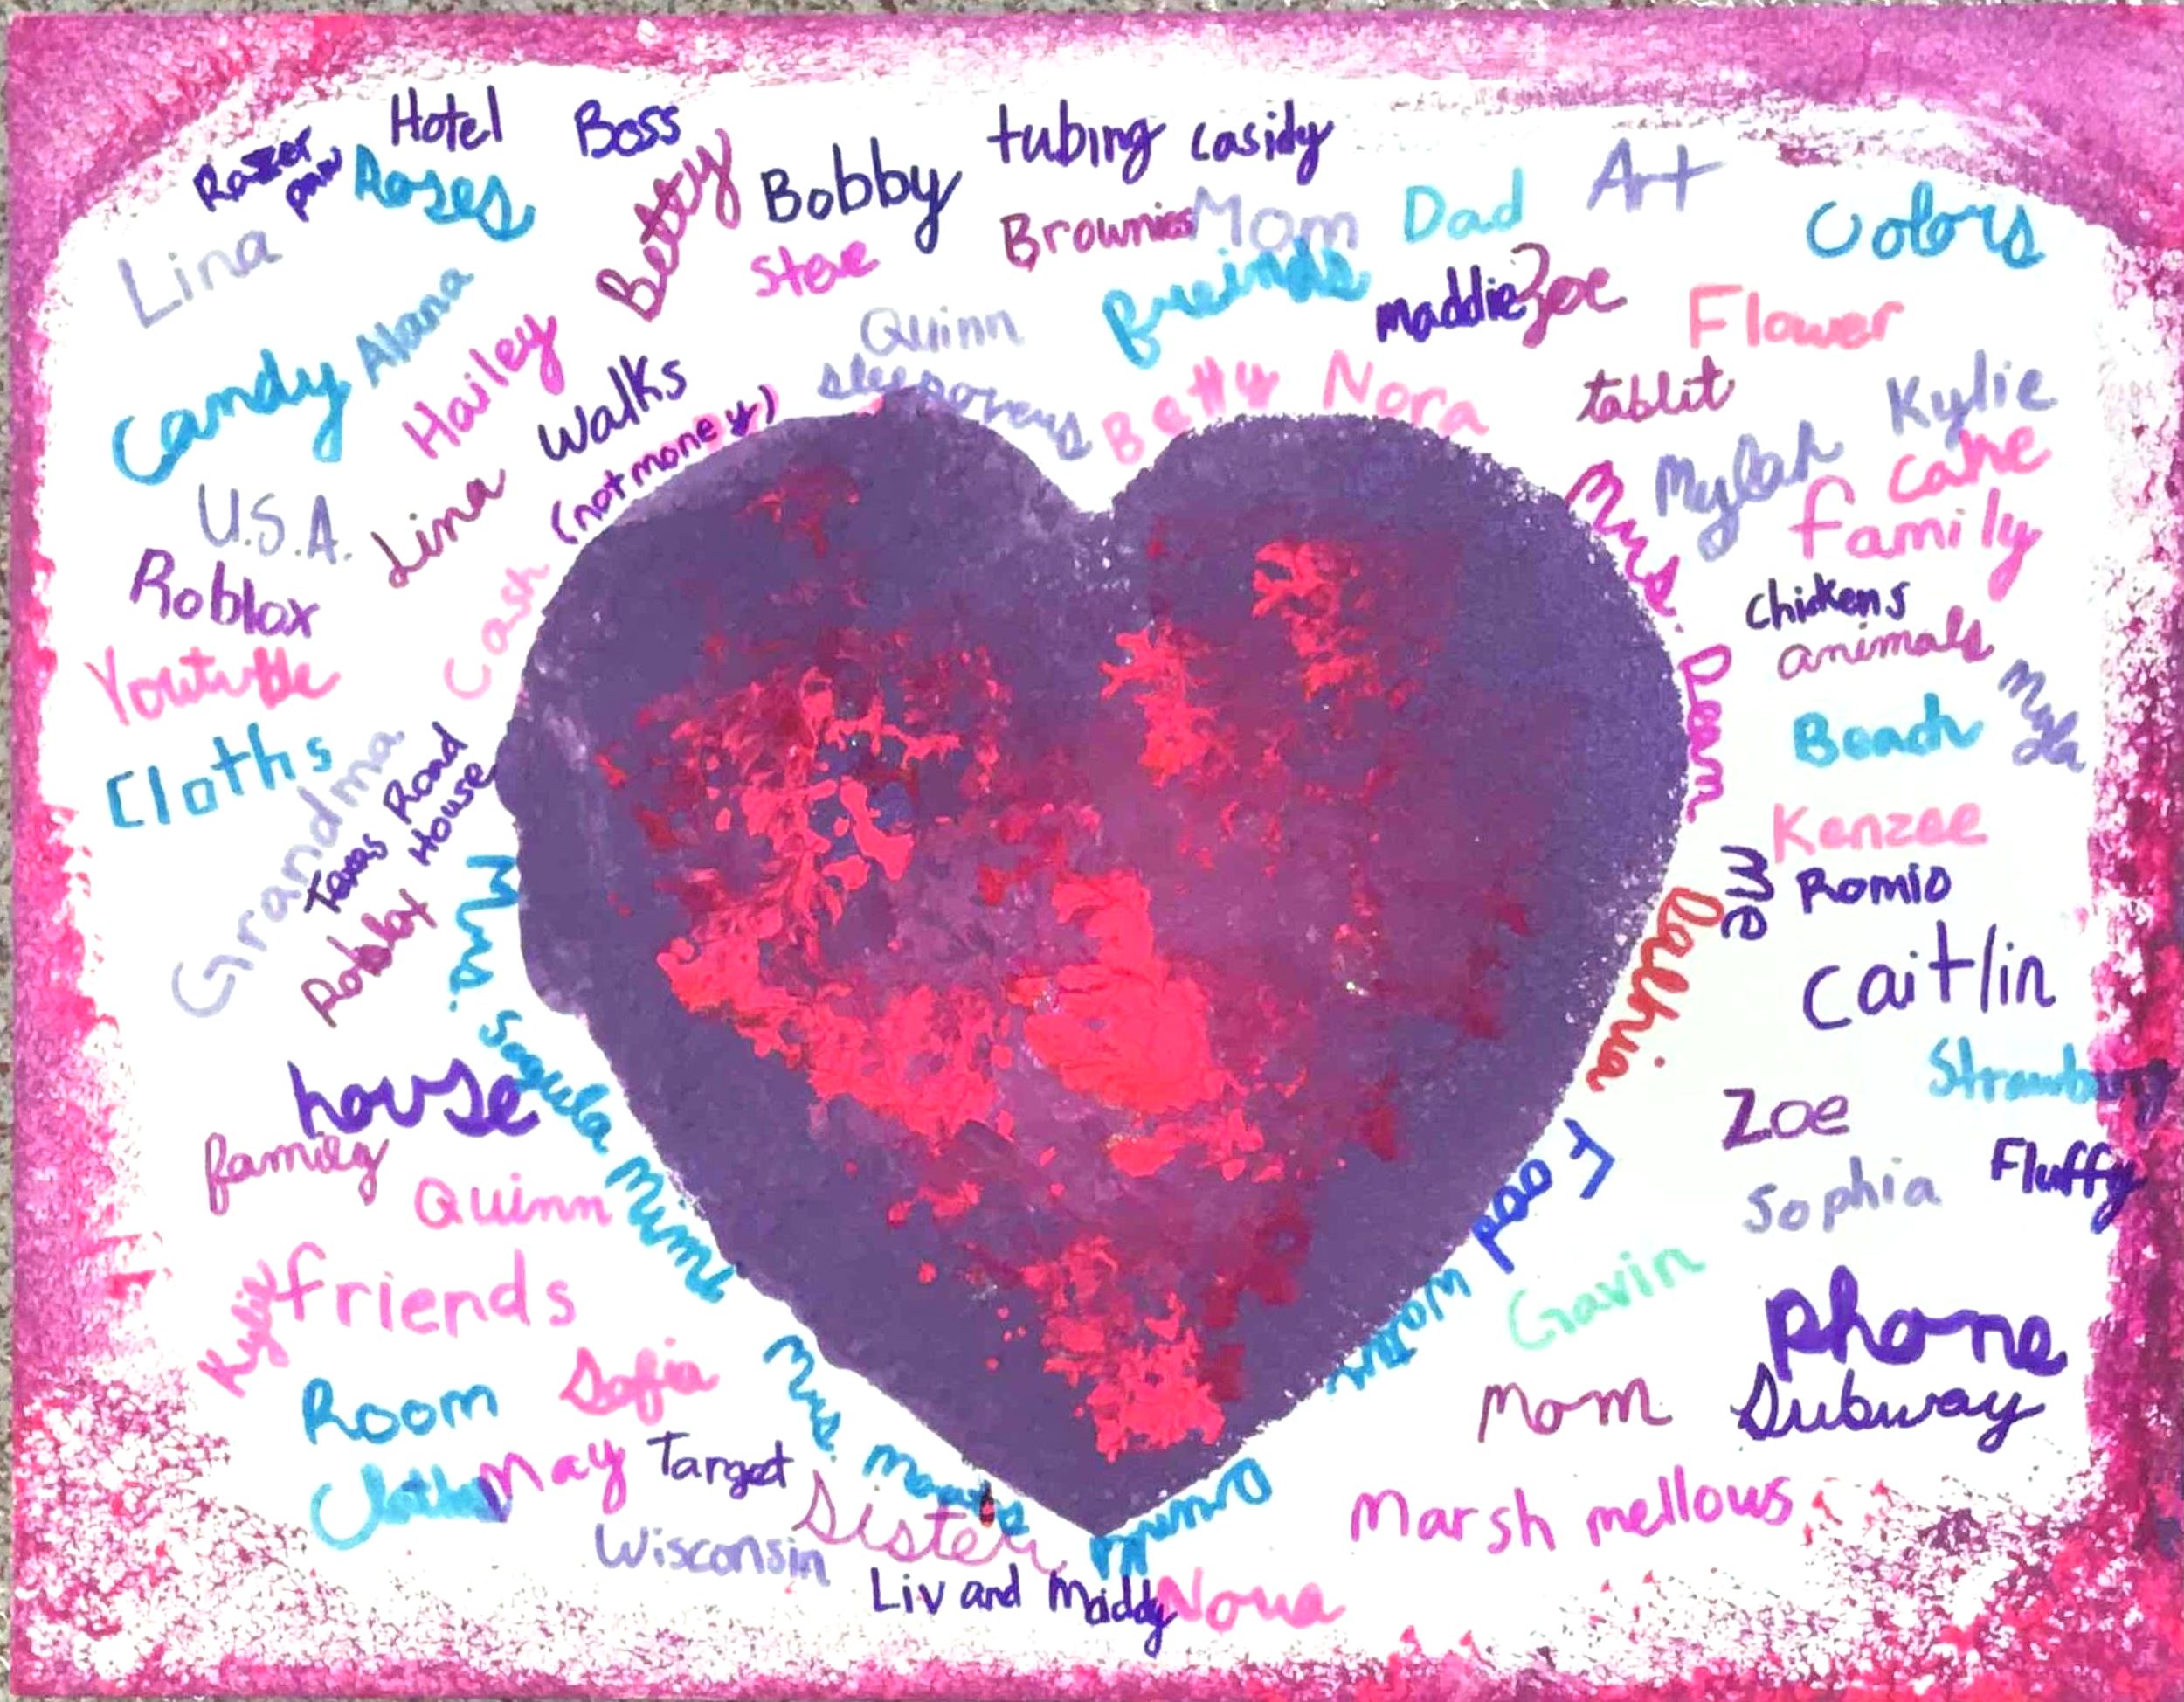 Hotel
Boss
tubing
casidy
Art
Roses
Betty
Bobby
Brownies
Mom
Dad
Colors
Lina
Steve
freinds
maddie
Zoe
Flower
Alana
Hailey
Quinn
Candy
Walks
sleepovers
Betty
Nora
tablit
Kylie
U.S.A.
Lina
Cash (not money)
Mylah
cake
family
Roblox
Chickens
animals
Youtube
Mrs. Dean
Beach
Myla
Cloths
Grandma
Texas Road
House
Kenzee
me
Romio
Roblox
Mrs.
Caitlin
house
Zoe
Fluffy
family
Food
Sophia
Quinn
Gavin
friends
Kylie
phone
Room
Sofia
Mom
Subway
May
Target
Mrs.
Sister
Marsh mellows
Wisconsin
Liv and Maddy